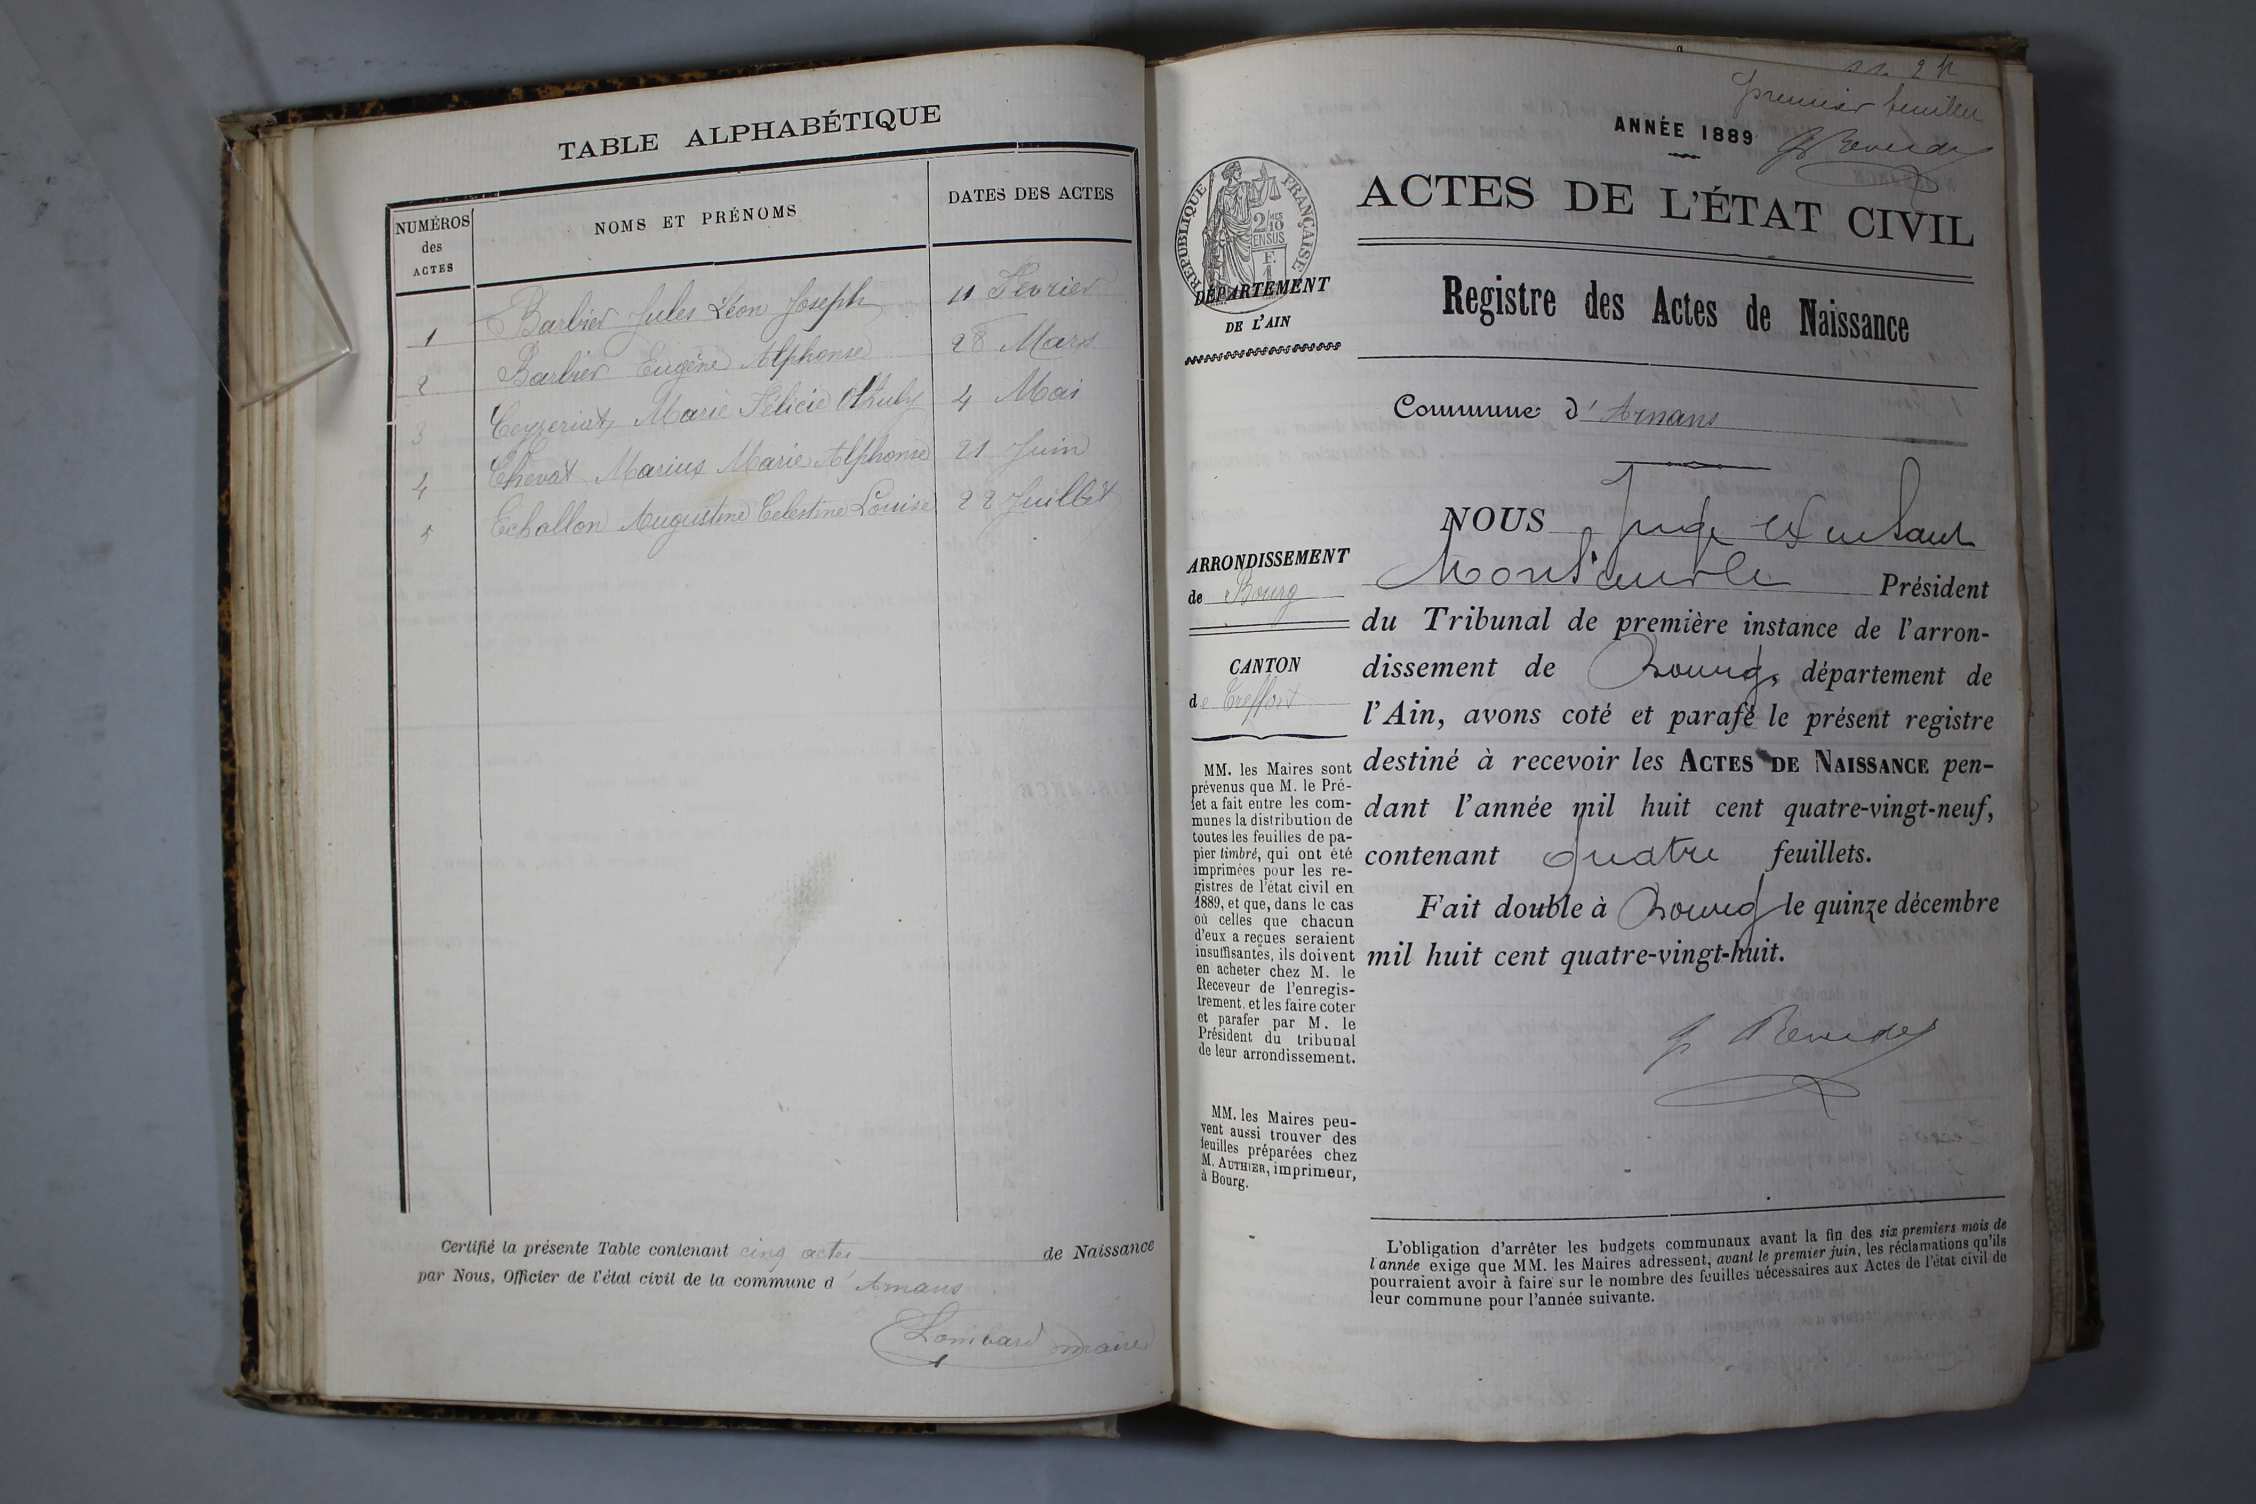 TABLE ALPHABÉTIQUE
NUMÉROS des ACTES
NOMS ET PRÉNOMS
DATES DES ACTES
1 Barbier Jules Léon Joseph 11 Février
2 Barbier Eugène Alphonse 28 Mars
3 Ceyzeriat Marie Félicie 4 Mai
4 Chevat Marius Marie Alphonse 21 Juin
5 Echallon Augustine Celestine Louise 22 Juillet
Certifié la présente Table contenant cinq actes de Naissance
par Nous, Officier de l'état civil de la commune d'Arnans
Lombard maire
premier feuillet
ANNÉE 1889
RÉPUBLIQUE FRANÇAISE
2/10 EN SUS
F. 1
ACTES DE L'ÉTAT CIVIL
DÉPARTEMENT
DE L'AIN
Registre des Actes de Naissance
Commune d'Arnans
ARRONDISSEMENT
de Bourg
CANTON
de Treffort
MM. les Maires sont
prévenus que M. le Pré-
fet a fait entre les com-
munes la distribution de
toutes les feuilles de pa-
pier timbré, qui ont été
imprimées pour les re-
gistres de l'état civil en
1889, et que, dans le cas
où celles que chacun
d'eux a reçues seraient
insuffisantes, ils doivent
en acheter chez M. le
Receveur de l'enregis-
trement, et les faire coter
et parafer par M. le
Président du tribunal
de leur arrondissement.
MM. les Maires peu-
vent aussi trouver des
feuilles préparées chez
M. AUTHIER, imprimeur,
à Bourg.
NOUS Juge
Président
du Tribunal de première instance de l'arron-
dissement de Bourg, département de
l'Ain, avons coté et parafé le présent registre
destiné à recevoir les ACTES DE NAISSANCE pen-
dant l'année mil huit cent quatre-vingt-neuf,
contenant quatre feuillets.
Fait double à Bourg le quinze décembre
mil huit cent quatre-vingt-huit.
L'obligation d'arrêter les budgets communaux avant la fin des six premiers mois de
l'année exige que MM. les Maires adressent, avant le premier juin, les réclamations qu'ils
pourraient avoir à faire sur le nombre des feuilles nécessaires aux Actes de l'état civil de
leur commune pour l'année suivante.